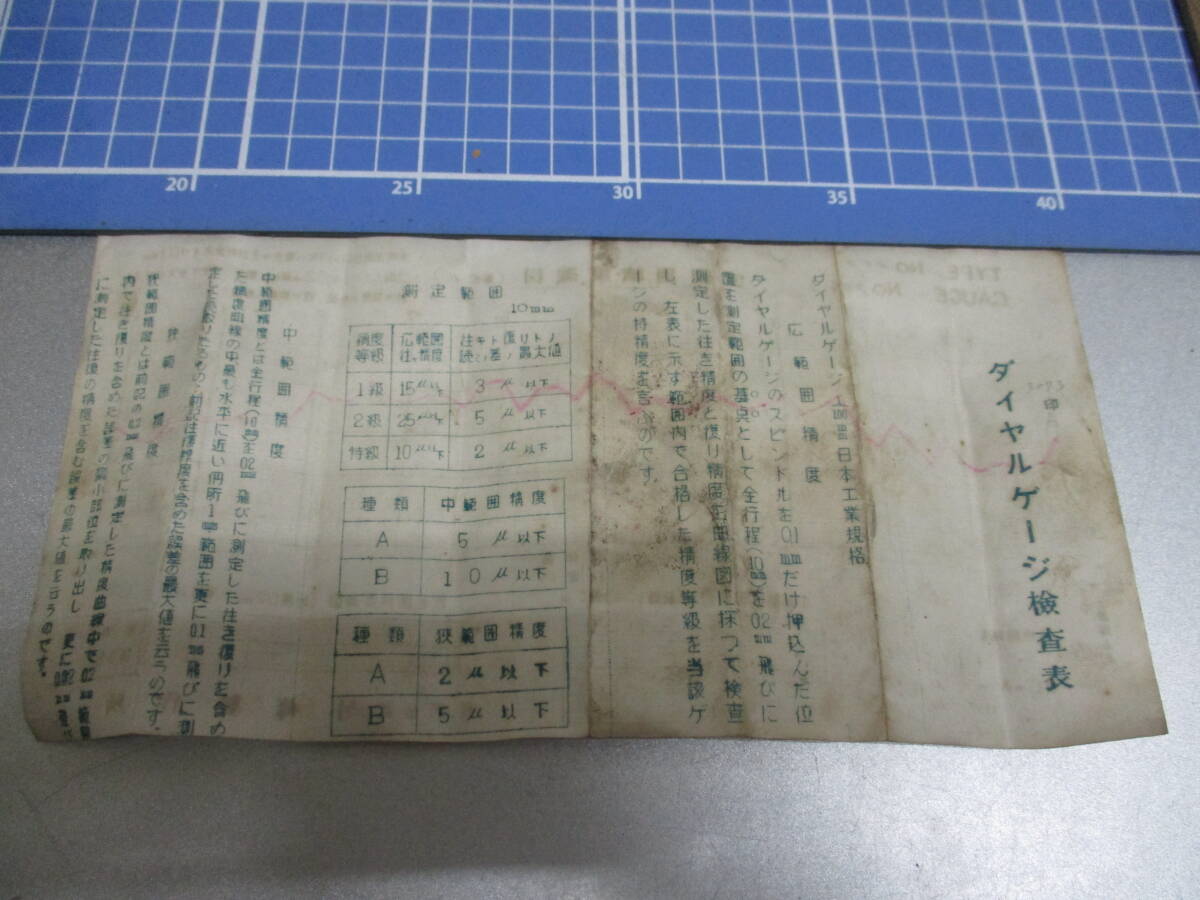 20
25
30
35
40
ダイヤルゲージ検査表
印
ダイヤルゲージ 日本工業規格
広範囲精度
ダイヤルゲージのスピンドルを0.1mmだけ押込んだ位
置を測定範囲の基点として全行程(10mm)を0.2mm飛びに
測定した往き精度と復り精度を曲線図に採つて検査
し、左表に示す範囲内で合格した精度等級を当該ゲ
ージの精度を言ふのです。
測定範囲
10mm
精度等級 広範囲往精度 往キト復リトノ読ミノ差ノ最大値
1級 15μ以下 3μ以下
2級 25μ以下 5μ以下
特級 10μ以下 2μ以下
種類 中範囲精度
A 5μ以下
B 10μ以下
種類 狭範囲精度
A 2μ以下
B 5μ以下
中範囲精度
中範囲精度とは全行程(10mm)を0.2mm飛びに測定した往き復りを含め
た精度曲線の中最も水平に近い個所1mm範囲を更に0.1mm飛びに測
定した 前記往復精度を含めた誤差の最大値を云うのです。
狭範囲精度
狭範囲精度とは前記の 飛びに測定した精度曲線中で0.2mm範囲
内で往き復りを含めた誤差の最小部位を取り出し 更に
に測定した往復の精度を含む誤差の最大値を云うのです。